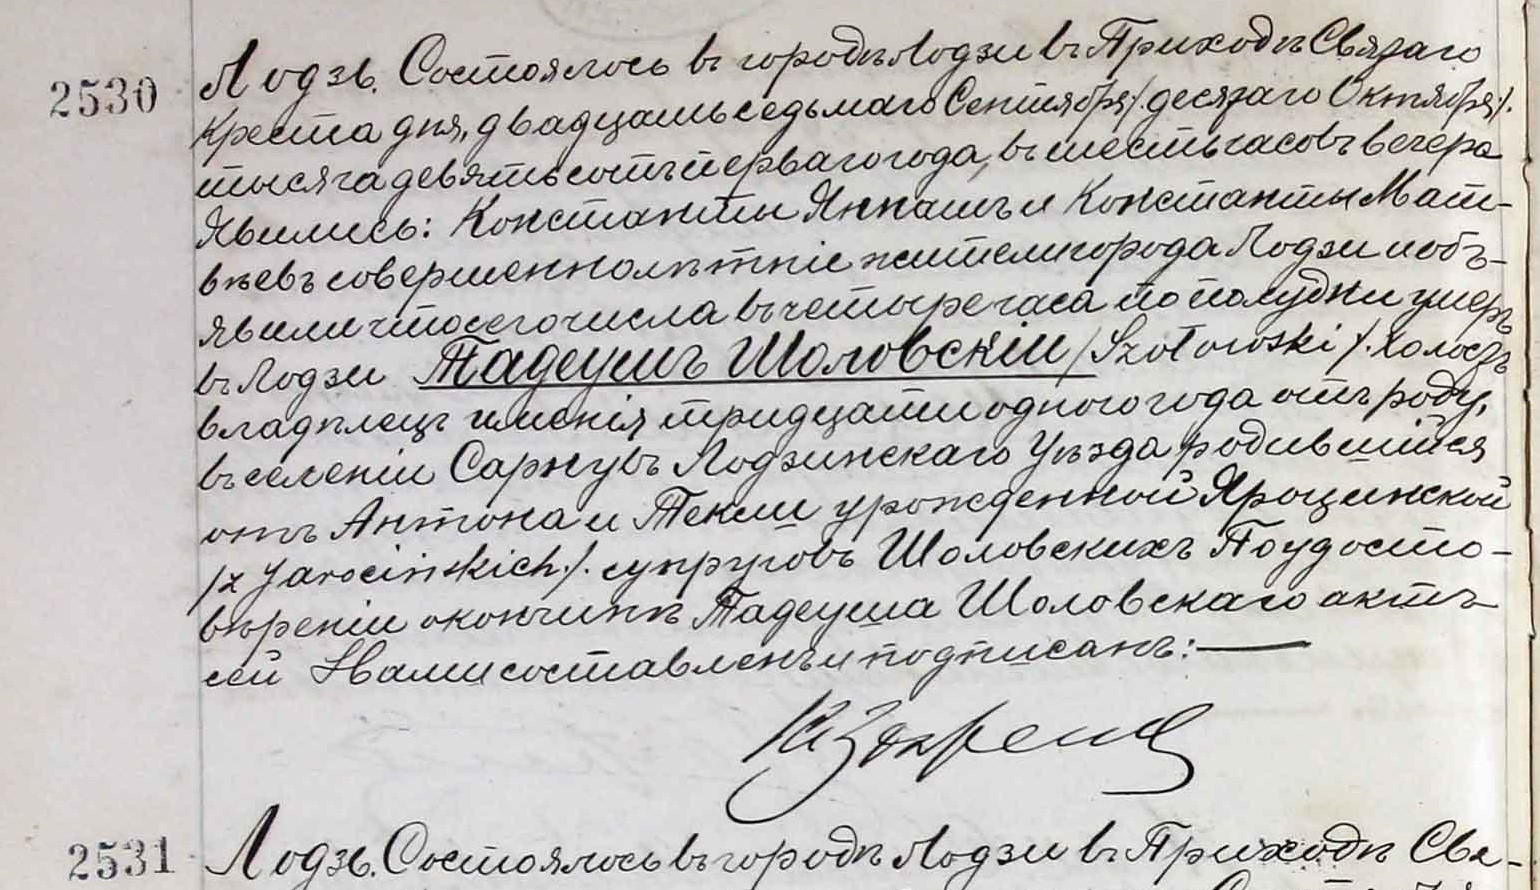 2530
Лодзь. Состоялось въ городѣ Лодзи въ Приходѣ Святаго
Креста дня, двадцать седьмаго Сентября /. десятаго Октября /.
тысяча девятьсотъ перваго года, въ шесть часовъ вечера
Явились: Константы Янкашъ и Константы Мат-
вѣевъ совершеннолѣтніе жители города Лодзи и объ-
явили что сего числа въ четыре часа по полудни умеръ
въ Лодзи Тадеушъ Шоловскій /Szołowski/. холостъ
владѣлецъ имѣнія тридцати одного года отъ роду,
въ селеніи Сарнувъ Лодзинскаго Уѣзда родившійся
отъ Антона и Текли урожденной Яроцинской
/z Jarocińskich/. супруговъ Шоловскихъ По удосто-
вѣреніи о кончинѣ Тадеуша Шоловскаго актъ
сей Нами составленъ и подписанъ: —
2531
Лодзь. Состоялось въ городѣ Лодзи въ Приходѣ Свя-